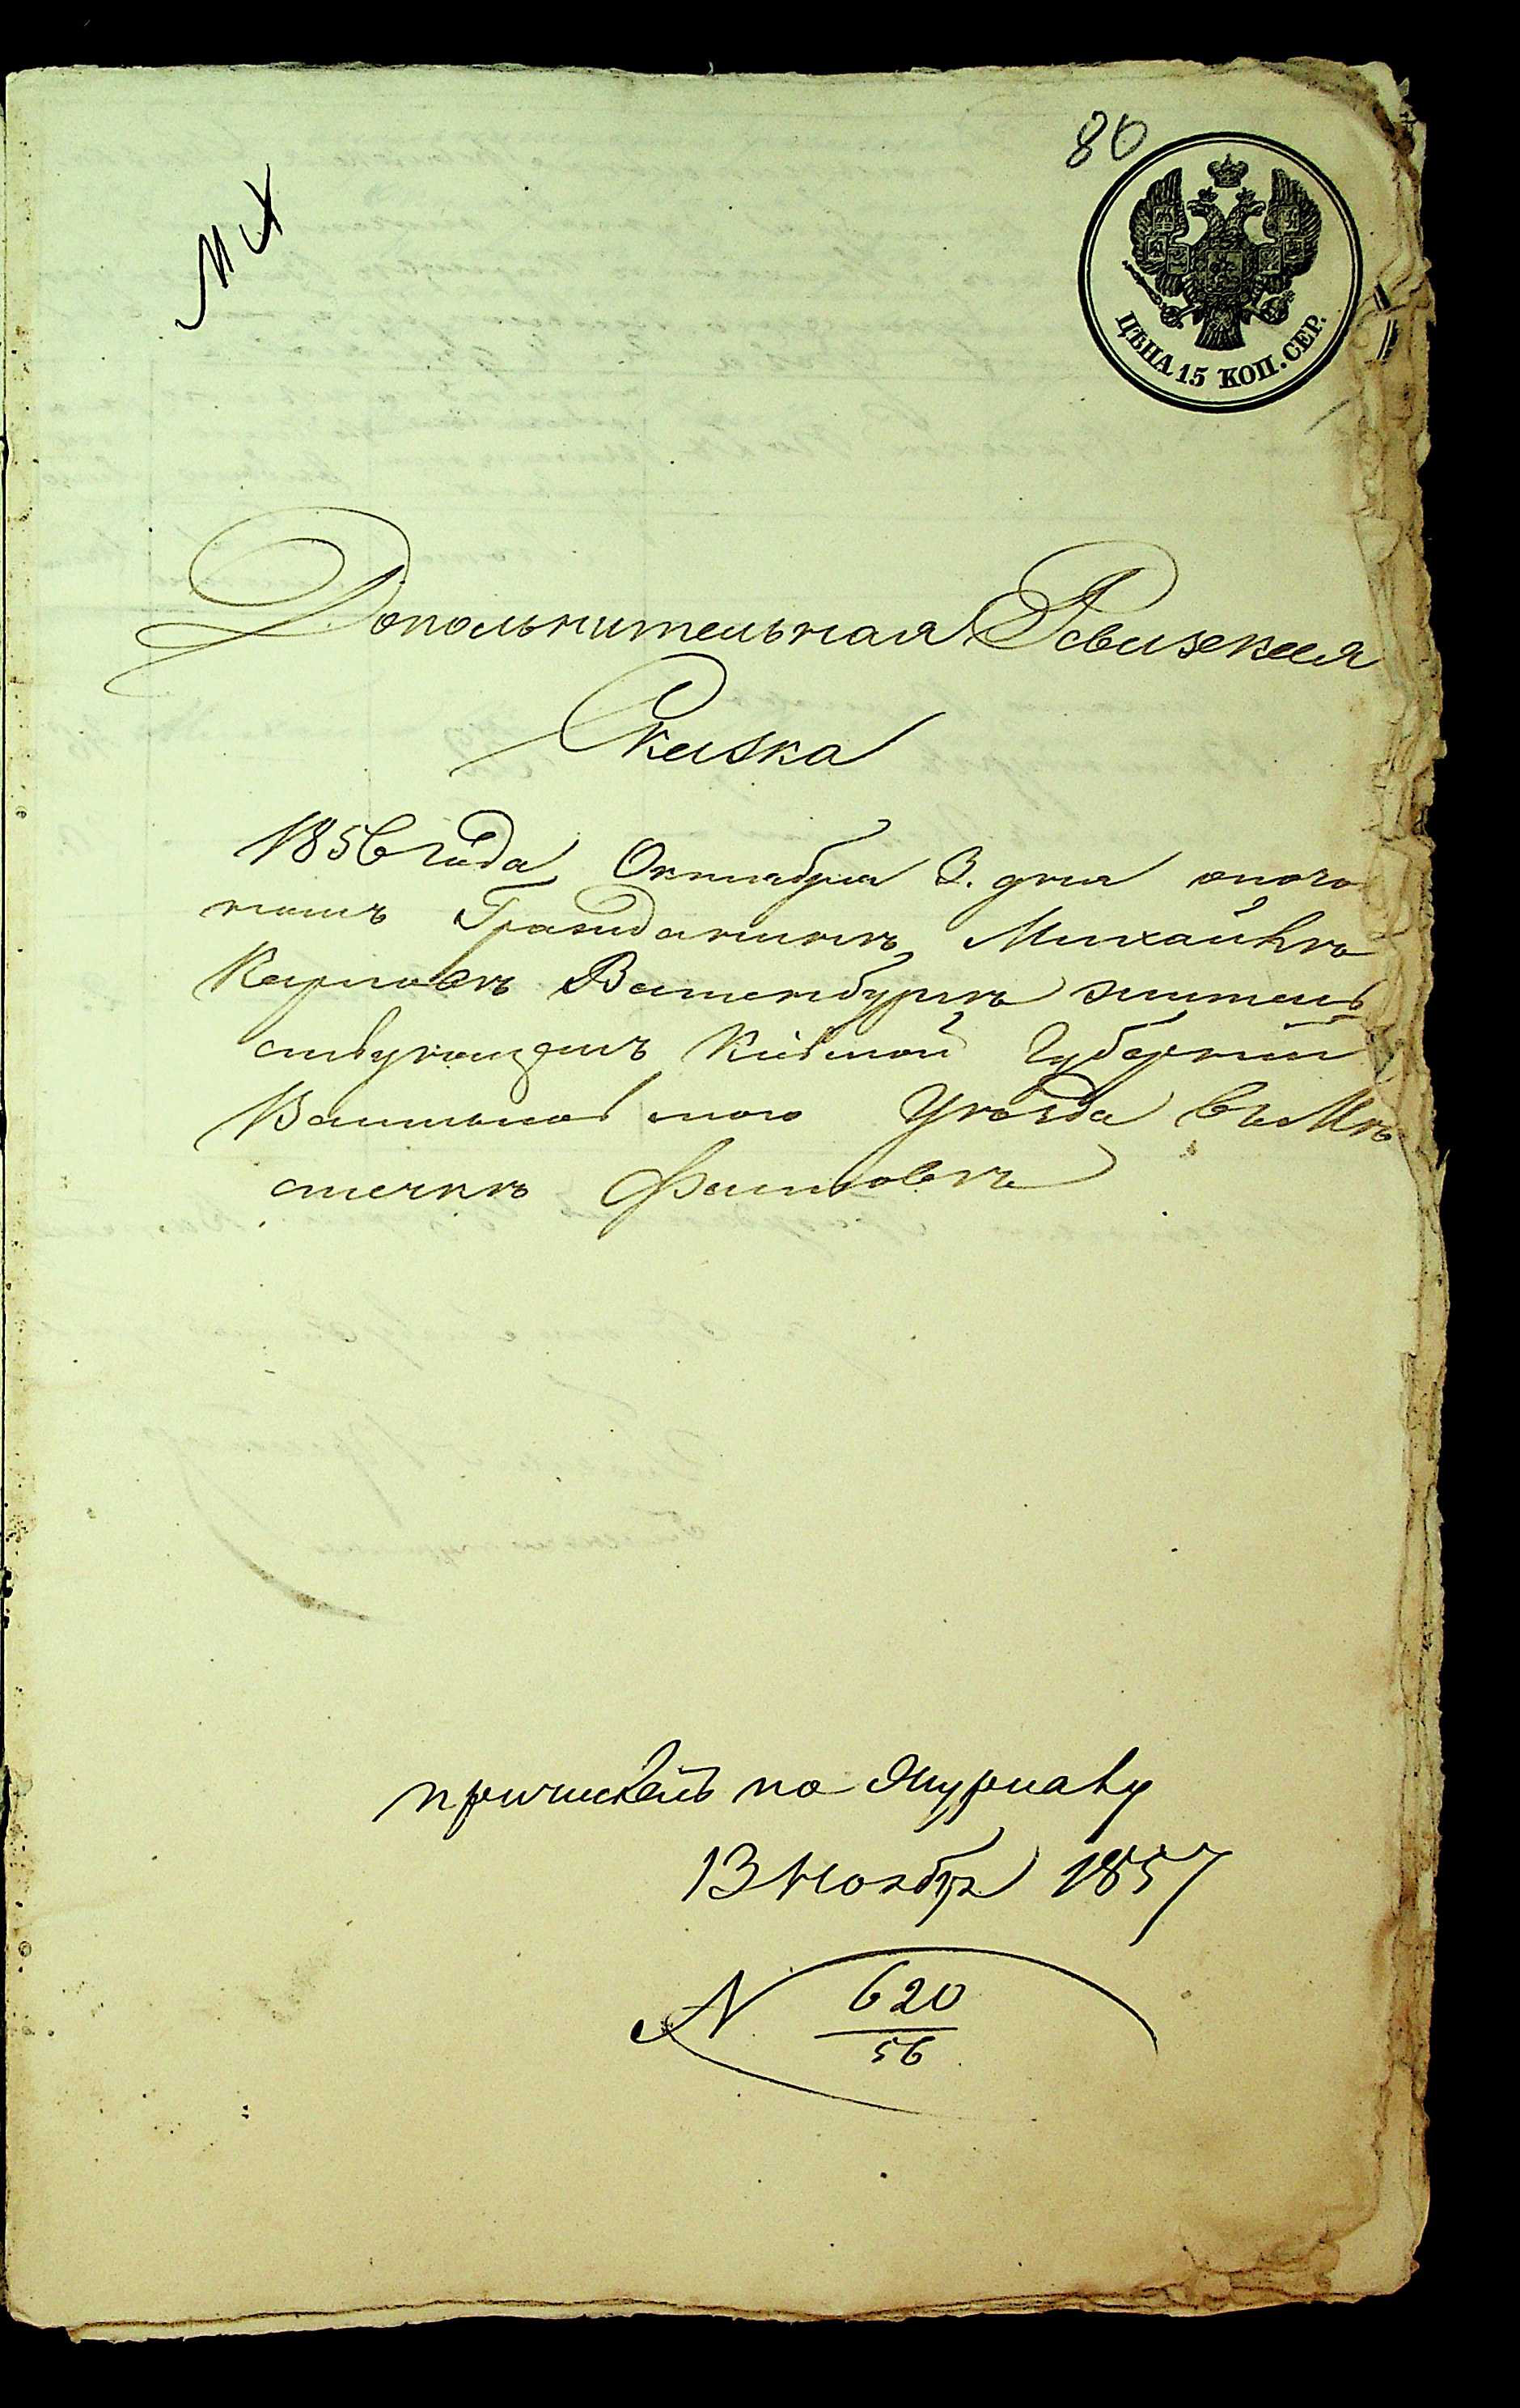 80
ЦѢНА 15 КОП. СЕР.
Дополнительная Ревизская
Сказка
1856 года Октября 3. дня о
Гражданинѣ Михайлѣ
Карловѣ Ватенбургѣ житель
ствующемъ Кіевской Губерніи
Васильковского Уѣзда въ Мѣ
стечкѣ Фастовѣ
причисленъ по Журналу
13 Ноября 1857
N 620
56